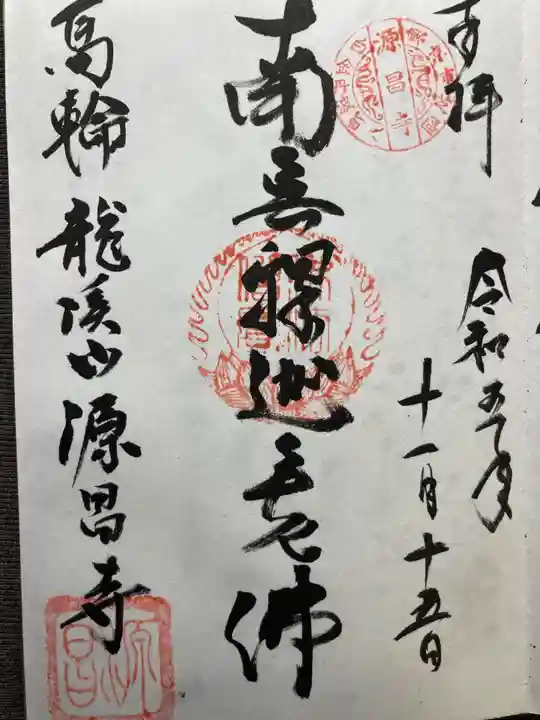 奉拝
令和五年
十一月十五日
南無釋迦牟尼佛
高輪 龍溪山 源昌寺
源昌寺
源昌